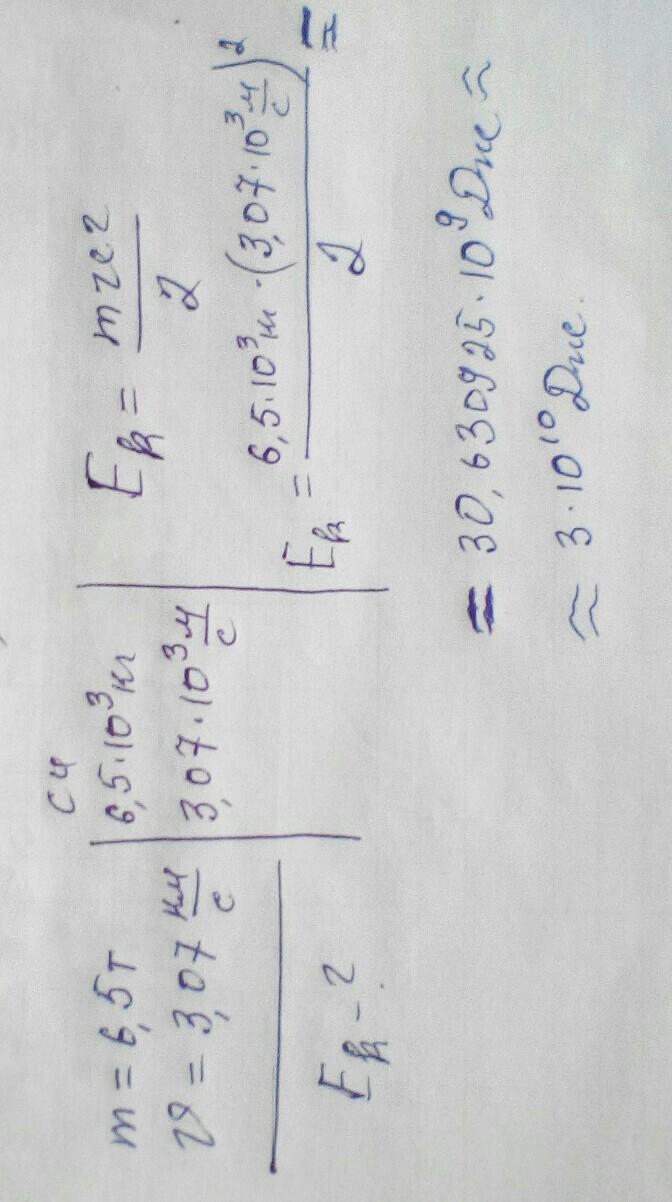 m = 6,5т
υ = 3,07 км/с
Eк - ?
СИ
6,5·10³ кг
3,07·10³ м/с
Eк = mυ²/2
Eк = 6,5·10³ кг · (3,07·10³ м/с)²/2 =
= 30,630925·10⁹ Дж ≈
≈ 3·10¹⁰ Дж.